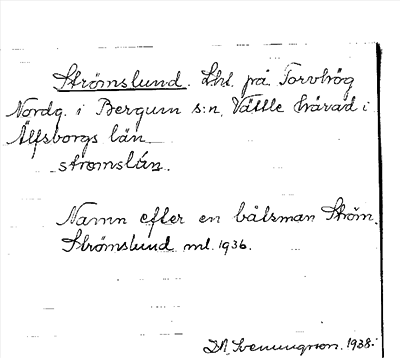 Strömslund. Lht. på Torvhög
Nordg. i Bergum s:n, Vättle härad i
Älfsborgs län
strømslán.
Namn efter en båtsman Ström.
Strömslund ml. 1936.
Sveningson. 1938.